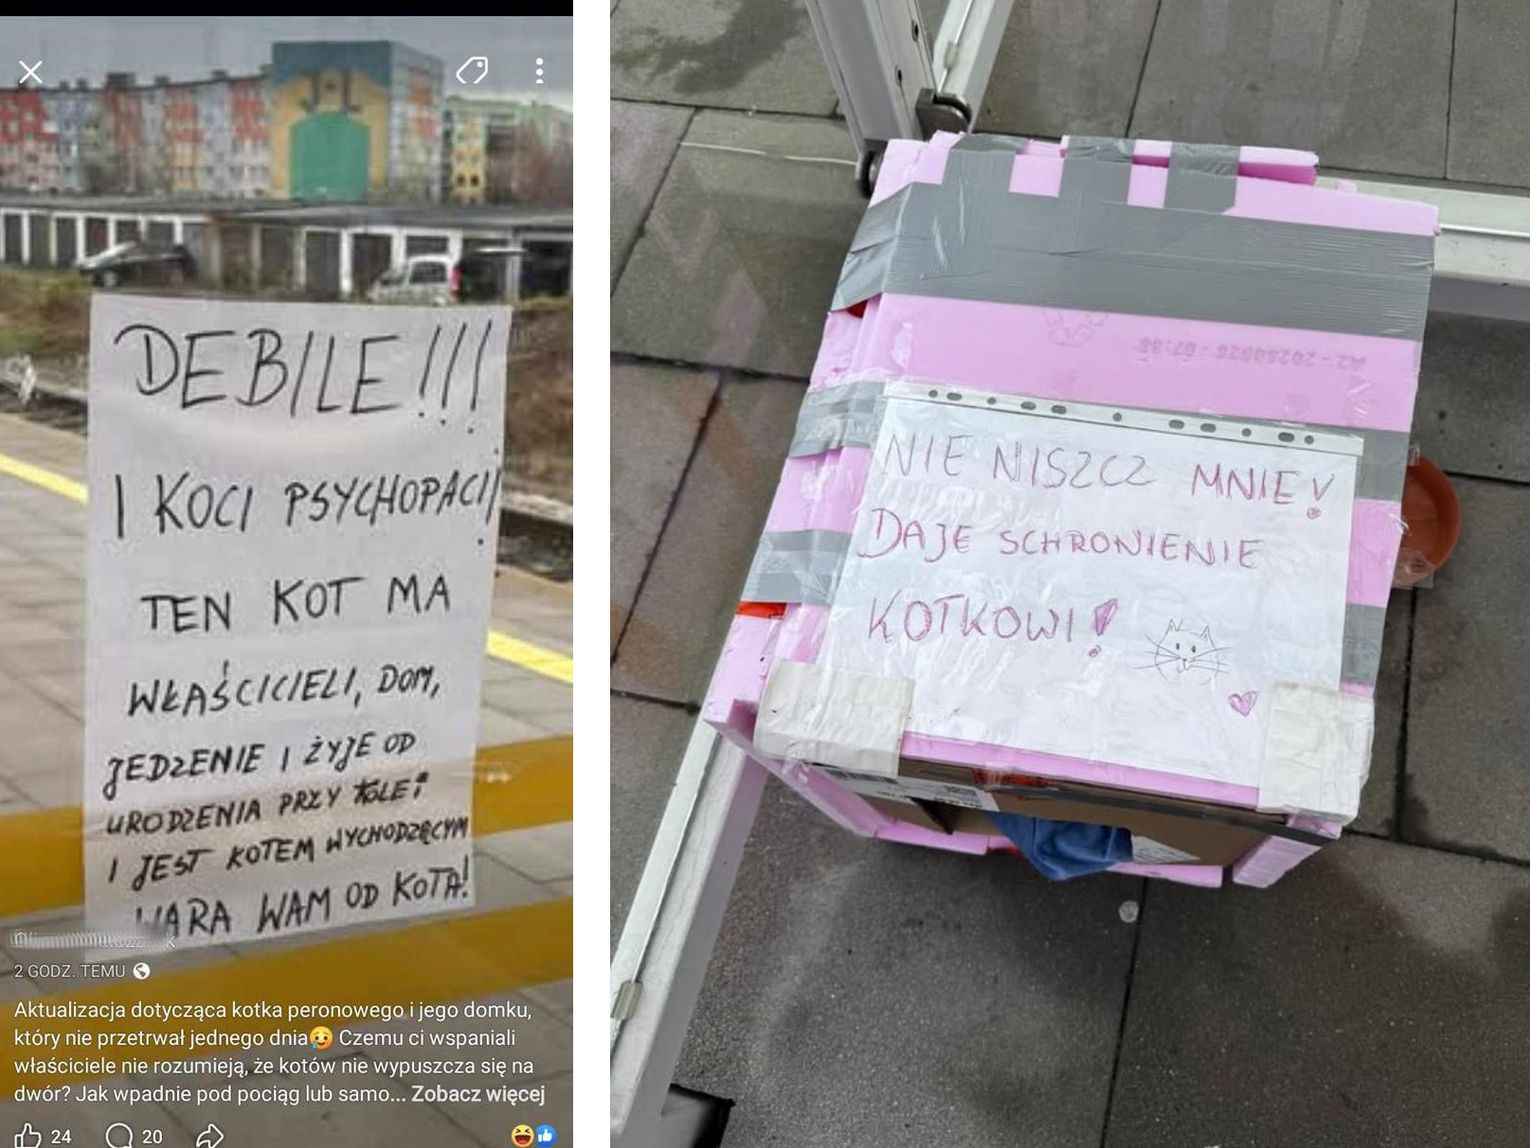 DEBILE!!!
I KOCI PSYCHOPACI!
TEN KOT MA
WŁAŚCICIELI, DOM,
JEDZENIE I ŻYJE OD
URODZENIA PRZY KOLEI
I JEST KOTEM WYCHODZĘCYM
WARA WAM OD KOTA!
2 GODZ. TEMU
Aktualizacja dotycząca kotka peronowego i jego domku,
który nie przetrwał jednego dnia🥲 Czemu ci wspaniali
właściciele nie rozumieją, że kotów nie wypuszcza się na
dwór? Jak wpadnie pod pociąg lub samo... Zobacz więcej
24 20
NIE NISZCZ MNIE!
DAJE SCHRONIENIE
KOTKOWI!